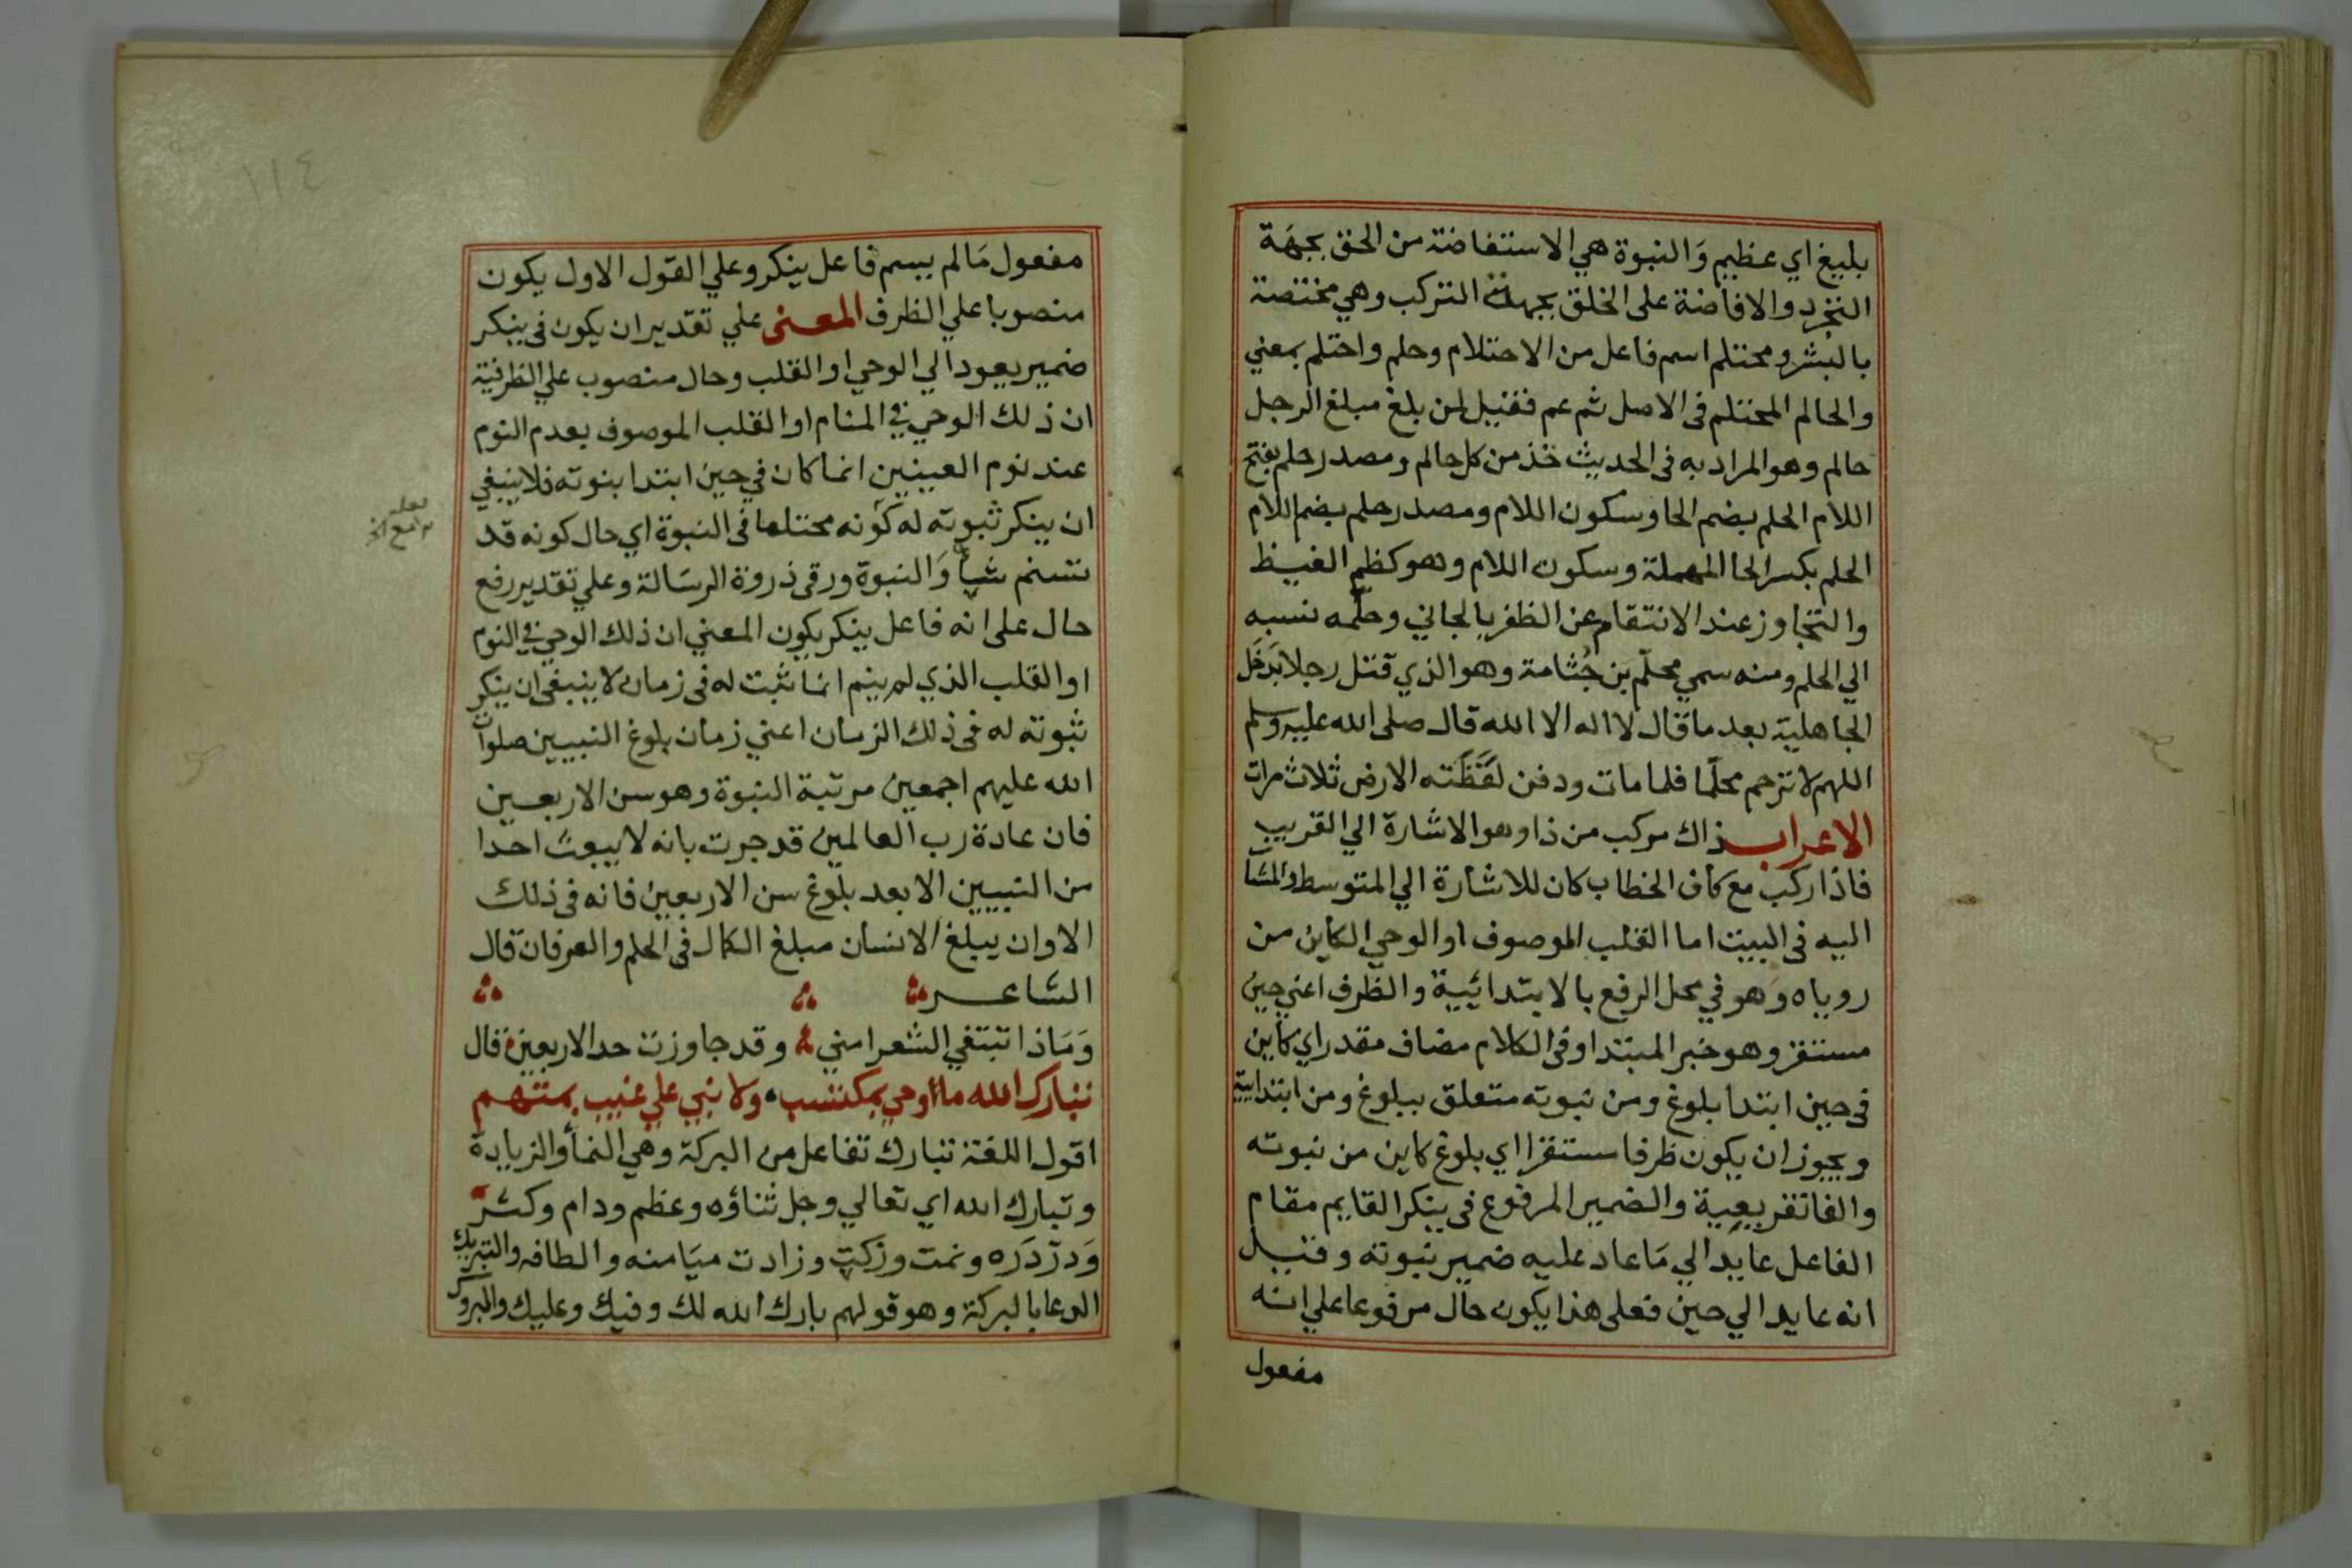 بليغ اي عظيم وَالنبوة هي الاستفاضة من الحق بجهَة
التجرد والافاضة على الخلق بجهة التركب وهي مختصة
بالبشر ومحتلم اسم فاعل من الاحتلام وحلم واحتلم بمعني
والحالم المحتلم فى الاصل ثم عم فقيل لمن بلغ مبلغ الرجل
حالم وهو المراد به فى الحديث خذ من كل حالم ومصدر حلم بفتح
اللام الحلم بضم الحا وسكون اللام ومصدر حلم بضم اللام
الحلم بكسر الحا المهملة وسكون اللام وهو كظم الغيظ
والتجاوز عند الانتقام عن الظفر بالجاني وحلّمه نسبه
الي الحلم ومنه سمي محلّم بن جُثامة وهو الذي قتل رجلا بذَحْل
الجاهلية بعد ما قال لا اله الا الله قال صلى الله عليه وسلم
اللهم لا ترحم محلّما فلما مات ودفن لفَظَته الارض ثلاث مرات
الاعراب ذاك مركب من ذا وهو الاشارة الي القريب
فاذا ركب مع كاف الخطاب كان للاشارة الي المتوسط والمشا
اليه فى البيت اما القلب الموصوف او الوحي الكاين من
روياه وَهو في محل الرفع بالابتدائية والظرف اعني حين
مستقر وهو خبر المبتدا وفى الكلام مضاف مقدر اي كاين
فى حين ابتدا بلوغ ومن نبوته متعلق ببلوغ ومن ابتدايية
ويجوز ان يكون ظرفا مستقرا اي بلوغ كاين من نبوته
والفا تفريعية والضمير المرفوع فى ينكر القايم مقام
الفاعل عايد الي مَا عاد عليه ضمير نبوته وقيل
انه عايد الي حين فعلى هذا يكون حال مرفوعا علي انه
مفعول
١١٤
مفعول مَا لم يسم فاعل ينكر وعلي القول الاول يكون
منصوبا علي الظرف المعنى علي تقدير ان يكون فى ينكر
ضمير يعود الي الوحي او القلب وحال منصوب علي الظرفية
ان ذلك الوحي في المنام او القلب الموصوف بعدم النوم
عند نوم العينين انما كان في حين ابتدا بنوته فلا ينبغي
ان ينكر ثبوته له كَونه محتلما فى النبوة اي حال كونه قد
تسنم وَالنبوة ورقى ذروة الرسَالة وعلي تقدير رفع
حال على انه فاعل ينكر يكون المعني ان ذلك الوحي في النوم
او القلب الذي لم ينم انما ثبت له فى زمان لا ينبغي ان ينكر
ثبوته له فى ذلك الزمان اعني زمان بلوغ النبيين صلوات
الله عليهم اجمعين مرتبة النبوة وهو سن الاربعين
فان عادة رب العالمين قد جرت بانه لا يبعث احدا
من النبيين الا بعد بلوغ سن الاربعين فانه فى ذلك
الاوان يبلغ الانسان مبلغ الكمال فى الحلم والعرفان قال
الشاعر
وَمَاذا تبتغي الشعرا مني وقد جاوزت حد الاربعين قال
تبارك الله ما اوحي بمكتسب ولا نبي علي غيب بمتهم
اقول اللغة تبارك تفاعل من البركة وهي النمأ والزيادة
وتبارك الله اي تعالي وجل ثناؤه وعظم ودام وكثر
وَدرّ دَره ونمت وزكت وزادت ميَامنه والطافه والتبريك
الدعا بالبركة وهو قولهم بارك الله لك وفيك وعليك والبروك